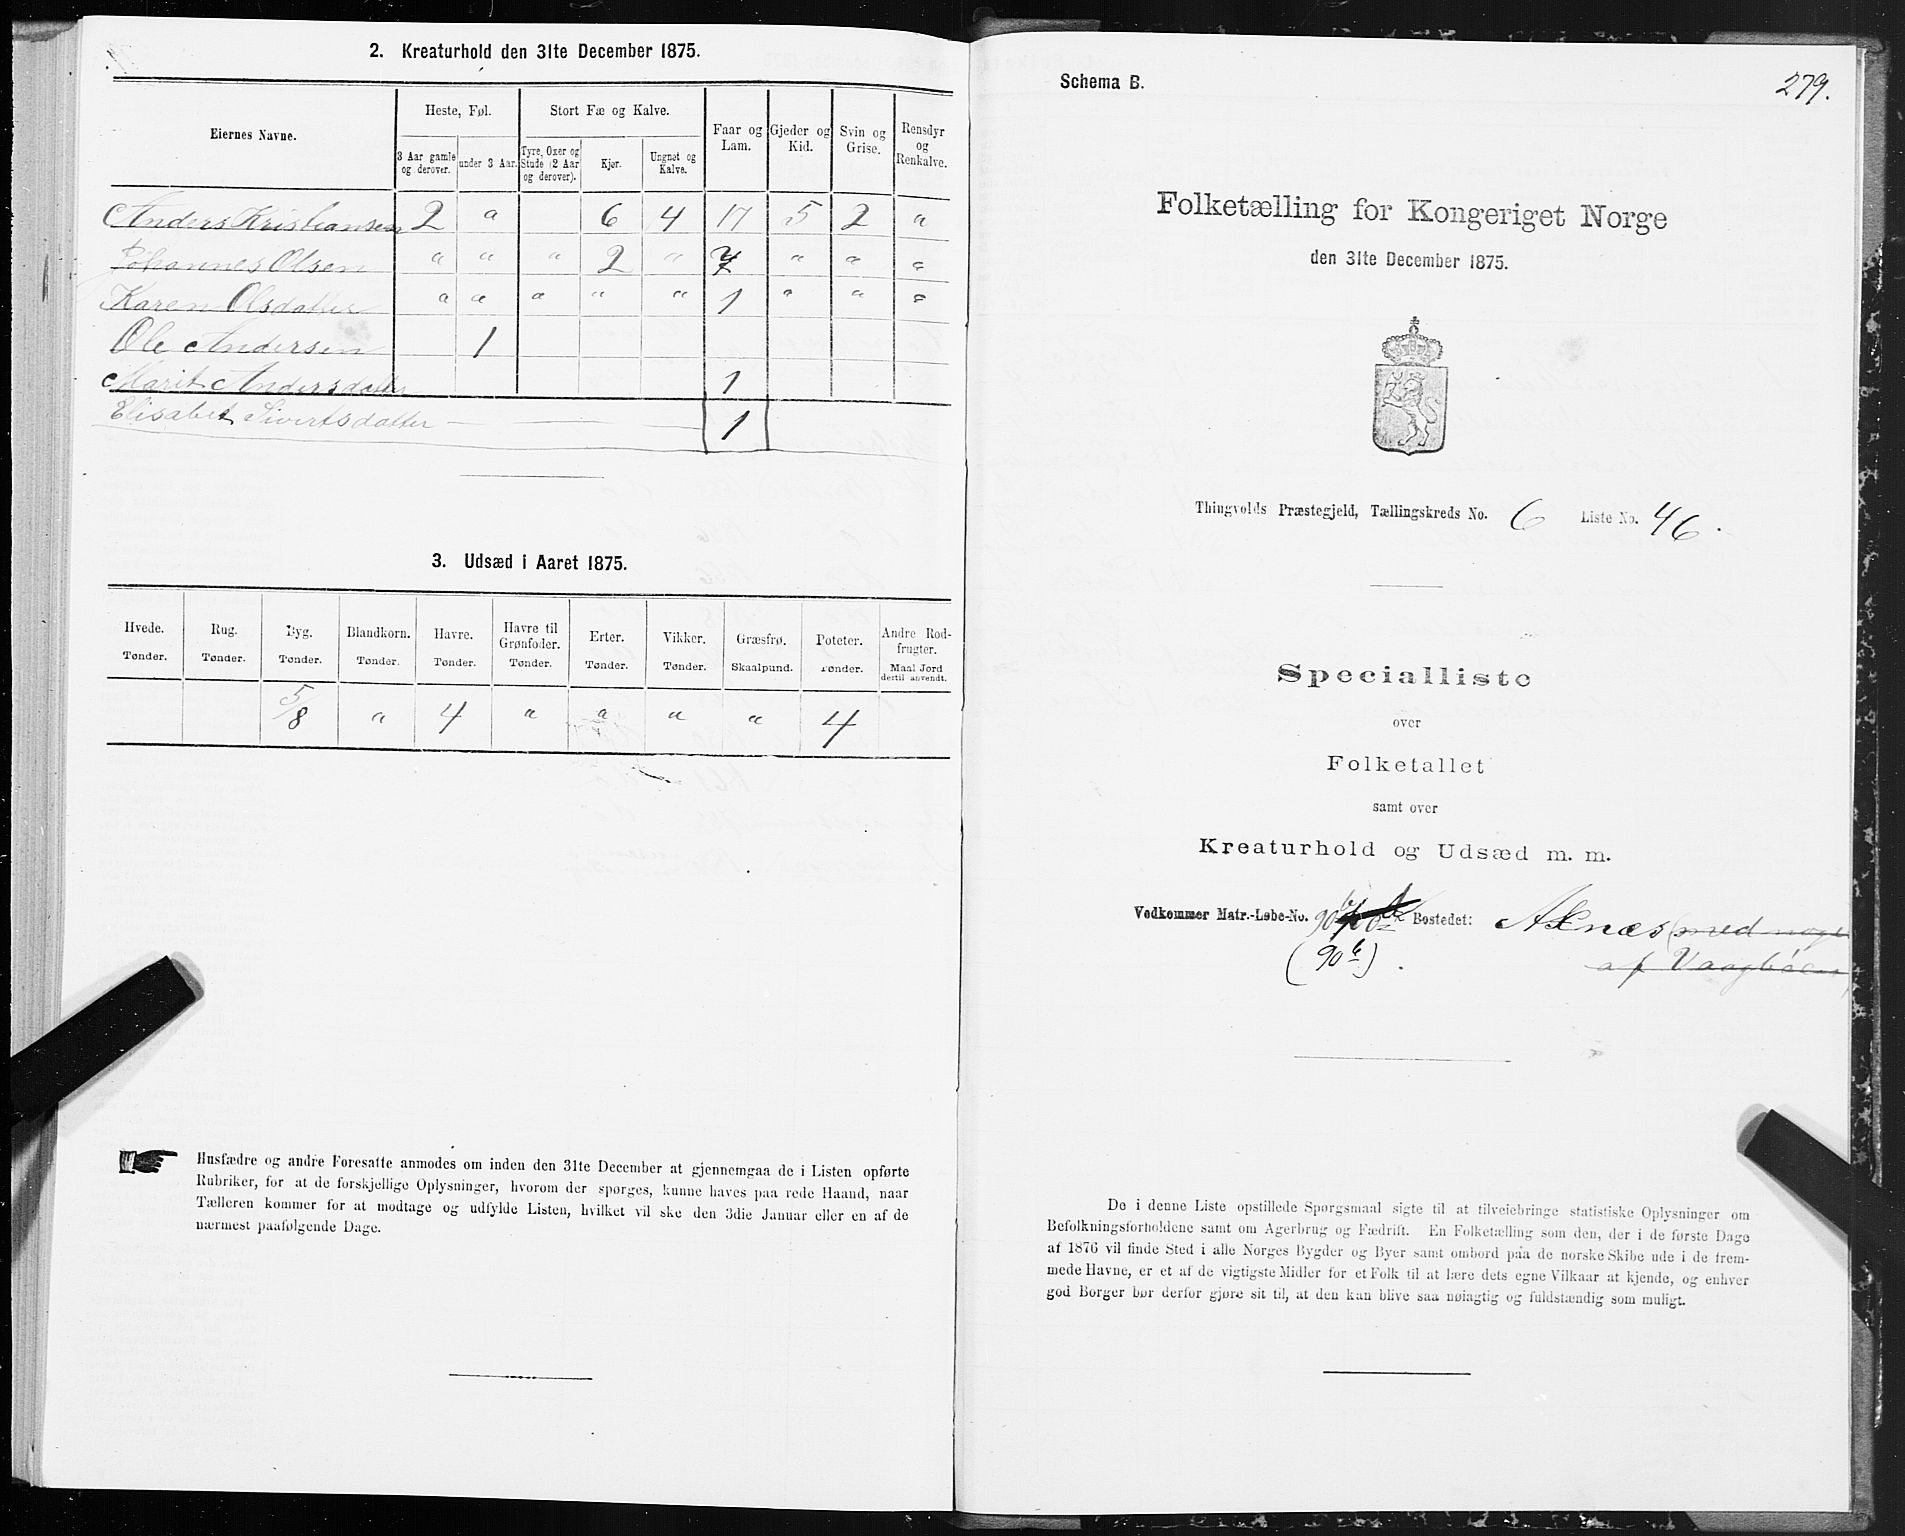 2. Kreaturhold den 31te December 1875.
Eiernes Navne. Heste, Føl. Stort Fæ og Kalve. Faar og Lam. Gjeder og Kid. Svin og Grise. Rensdyr og Renkalve.
3 Aar gamle og derover. under 3 Aar. Tyre, Oxer og Stude (2 Aar og derover). Kjør. Ungnøt og Kalve.
Anders Kristiansen 2 " 6 4 17 5 2 "
Johannes Olsen " " " 2 " 7 " " "
Karen Olsdatter " " " " " 1 " " "
Ole Andersen 1
Marit Andersdatter 1
Elisabet Sivertsdatter — — — 1
3. Udsæd i Aaret 1875.
Hvede. Rug. Byg. Blandkorn. Havre. Havre til Grønfoder. Erter. Vikker. Græsfrø. Poteter. Andre Rodfrugter.
Tønder. Tønder. Tønder. Tønder. Tønder. Tønder. Tønder. Tønder. Skaalpund. Tønder. Maal Jord dertil anvendt.
5/8 " 4 " " " " 4
Husfædre og andre Foresatte anmodes om inden den 31te December at gjennemgaa de i Listen opførte
Rubriker, for at de forskjellige Oplysninger, hvorom der spørges, kunne haves paa rede Haand, naar
Tælleren kommer for at modtage og udfylde Listen, hvilket vil ske den 3die Januar eller en af de
nærmest paafølgende Dage.
Schema B.
279.
Folketælling for Kongeriget Norge
den 31te December 1875.
Thingvolds Præstegjeld, Tællingskreds No. 6 Liste No. 46.
Specialliste
over
Folketallet
samt over
Kreaturhold og Udsæd m. m.
Vedkommer Matr.-Løbe-No. 90 b Bostedet: Axnæs (med noget
(90 b). af Vaagbøen)
De i denne Liste opstillede Spørgsmaal sigte til at tilveiebringe statistiske Oplysninger om
Befolkningsforholdene samt om Agerbrug og Fædrift. En Folketælling som den, der i de første Dage
af 1876 vil finde Sted i alle Norges Bygder og Byer samt ombord paa de norske Skibe ude i de frem-
mede Havne, er et af de vigtigste Midler for et Folk til at lære dets egne Vilkaar at kjende, og enhver
god Borger bør derfor gjøre sit til, at den kan blive saa nøiagtig og fuldstændig som muligt.